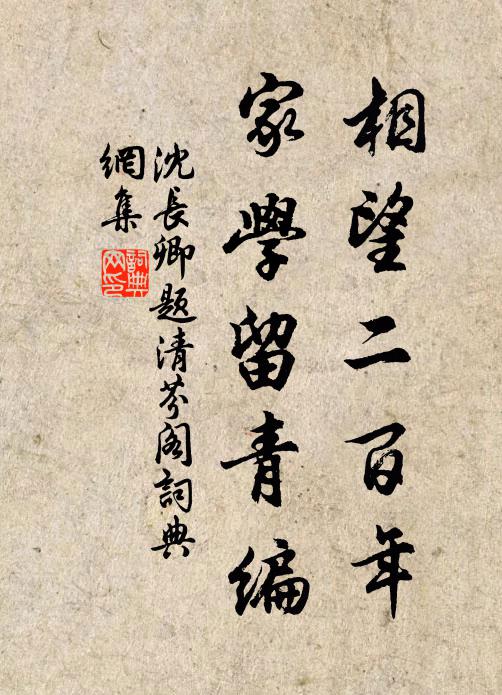 相望二百年
家學留青編
沈長卿題清芬閣詞典
網集
詞典網印